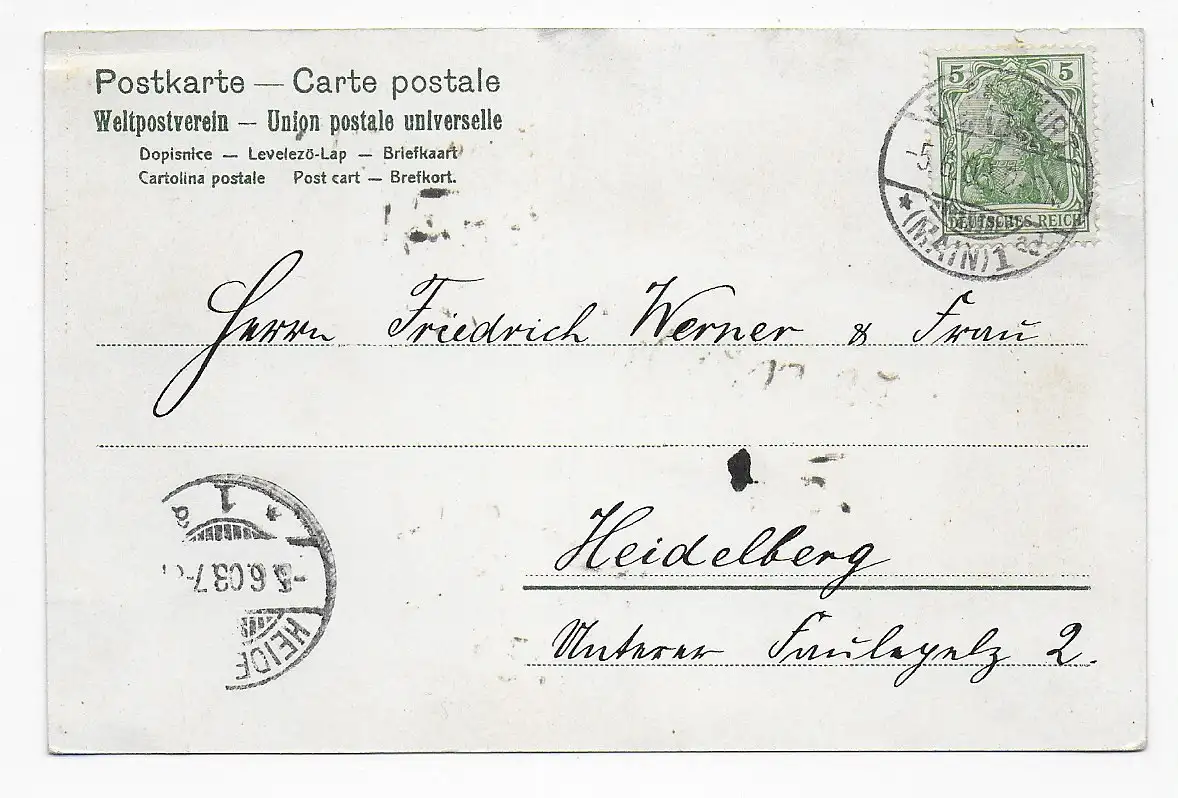 Postkarte — Carte postale
Weltpostverein — Union postale universelle
Dopisnice — Levelező-Lap — Briefkaart
Cartolina postale Post cart — Brefkort.
5 5
DEUTSCHES REICH
(MAIN) 1
Herrn Friedrich Werner & Frau
Heidelberg
Unterer Faulepelz 2.
1 a
-5.6.03.7-
HEIDE